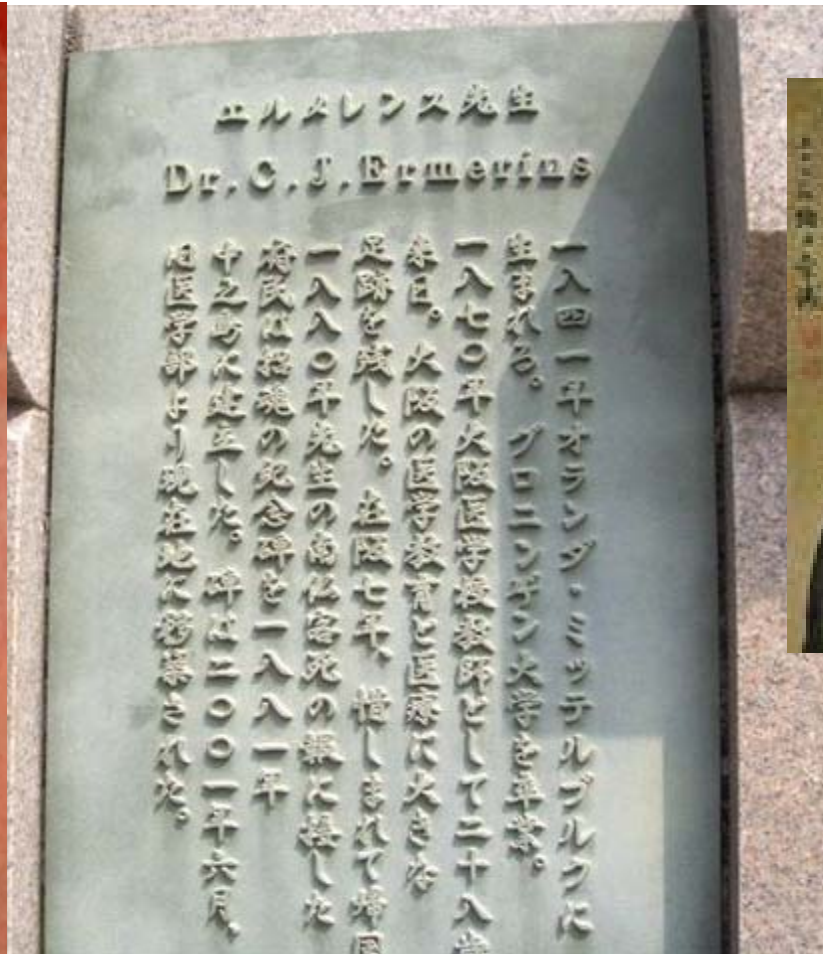 エルメレンス先生
Dr.C.J.Ermerins
一八四一年オランダ・ミッテルブルクに
生まれる。グロニンゲン大学を卒業。
一八七〇年大阪医学校教師として二十八歳
来日。大阪の医学教育と医療に大きな
足跡を残した。在阪七年、惜しまれて帰国
一八八〇年先生の南仏客死の報に接した
府民は招魂の記念碑を一八八一年
中之島に建立した。碑は二〇〇一年六月、
旧医学部より現在地に移築された。